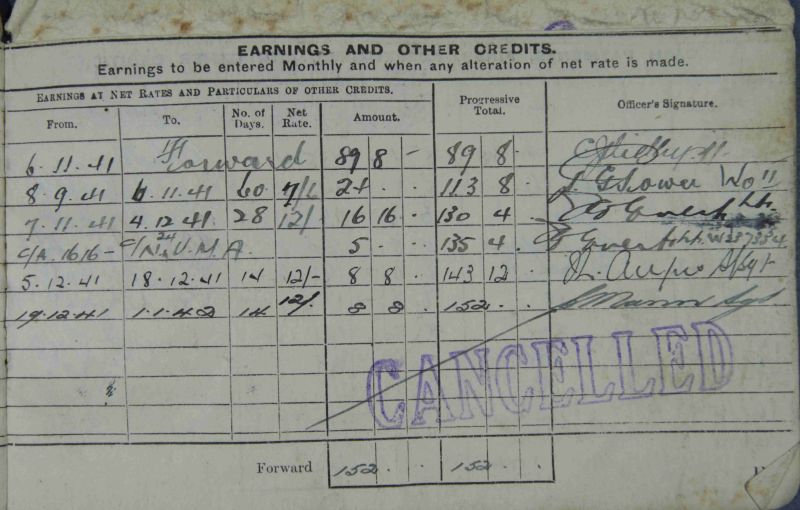 EARNINGS AND OTHER CREDITS.
Earnings to be entered Monthly and when any alteration of net rate is made.
EARNINGS AT NET RATES AND PARTICULARS OF OTHER CREDITS.
From. To. No. of Days. Net Rate. Amount. Progressive Total. Officer's Signature.
6.11.41 Forward 89 8 - 89 8 -
8.9.41 6.11.41 60 24 . . 113 8 . WO II
7.11.41 4.12.41 28 12/- 16 16 . 130 4 . Lt.
5 . 135 4 .
5.12.41 18.12.41 14 12/- 8 8 143 12 S/Sgt
19.12.41 1.1.42 14 12/- 8 8 152 . Sgt
CANCELLED
Forward 152 . . 152 . .